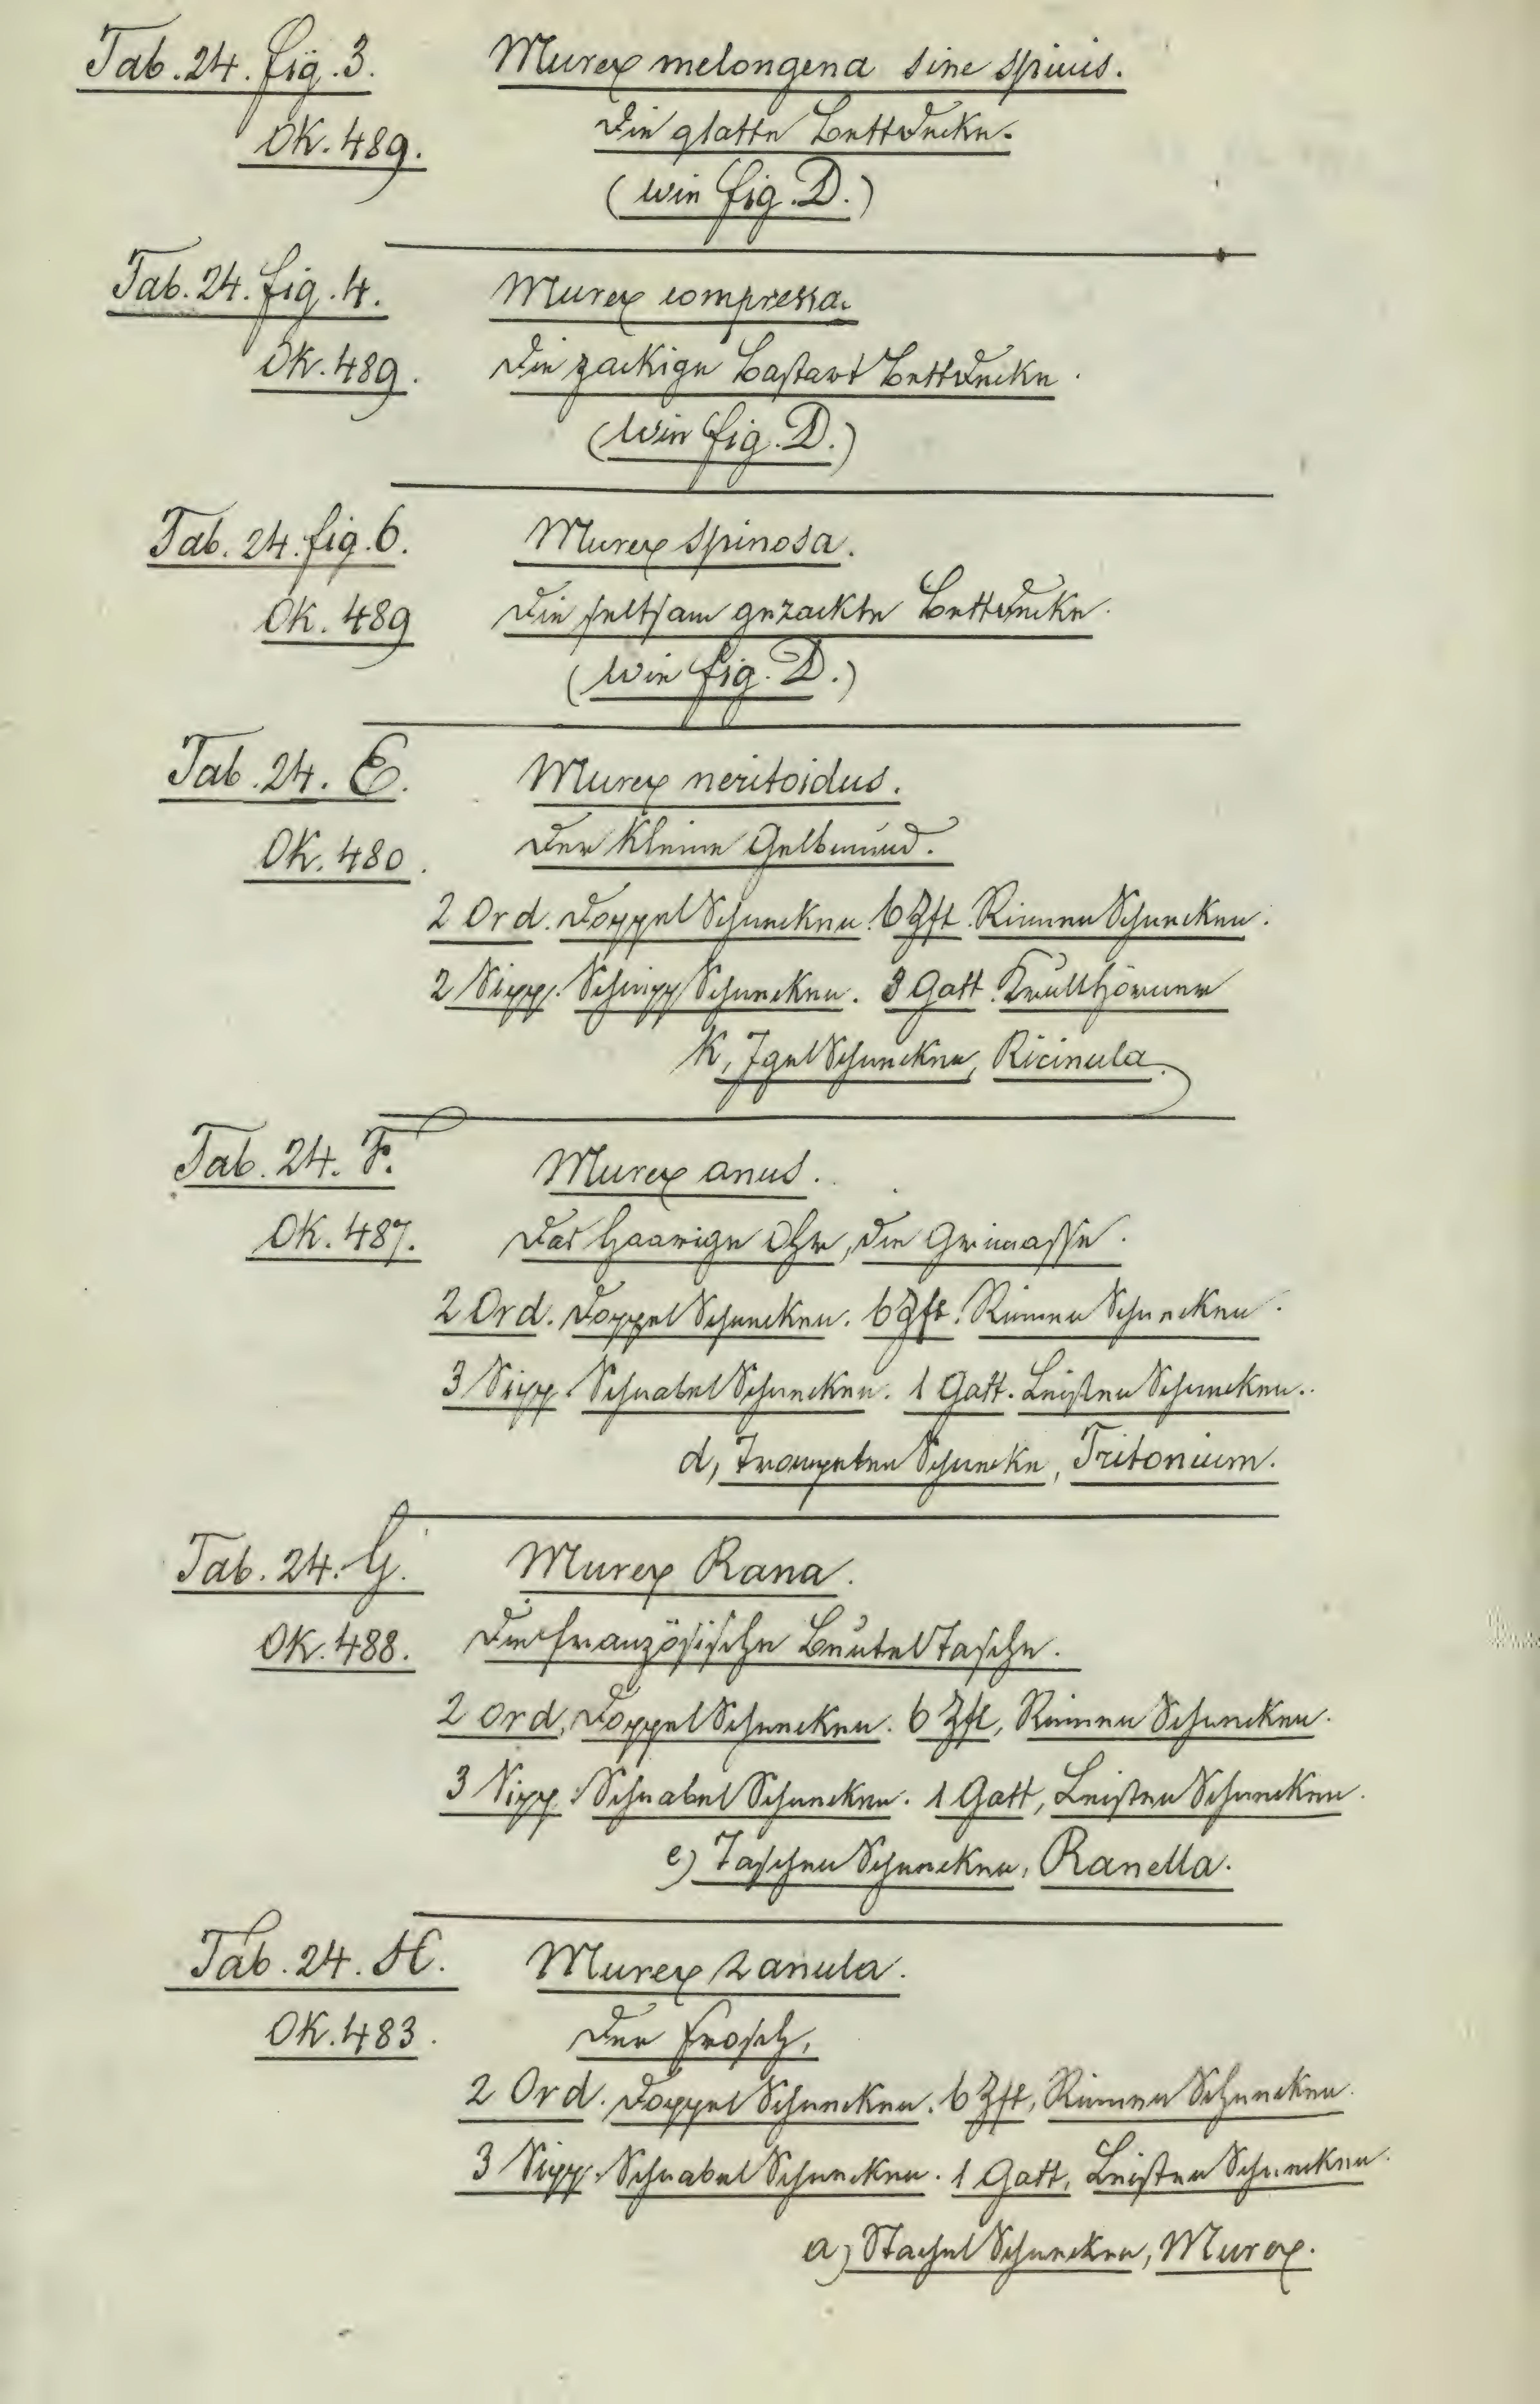 Tab. 24. fig. 3. Murex melongena sine spinis.
OK. 489. Die glatte Bettdecke.
(wie fig. D.)
Tab. 24. fig. 4. Murex compressa.
OK. 489. Die zackige Bastart Bettdecke.
(Wie fig. D.)
Tab. 24. fig. 6. Murex spinosa.
OK. 489 Die seltsam gezackte Bettdecke.
(Wie fig. D.)
Tab. 24. E. Murex neritoidus.
OK. 480. Der Kleine Gelbmund.
2 Ord. Doppel Schnecken. 6 Zft. Rinnen Schnecken.
2 Sipp. Schnecken. 3 Gatt.
K, Igel Schnecken, Ricinula.
Tab. 24. F. Murex anus.
OK. 487. Das haarige Ohr, die Grimasse.
2 Ord. Doppel Schnecken. 6 Zft. Rinnen Schnecken.
3 Sipp. Schnabel Schnecken. 1 Gatt. Leisten Schnecken.
d, Trompeten Schnecke, Tritonium.
Tab. 24. G. Murex Rana.
OK. 488. Die französische Beutel Tasche.
2 Ord, Doppel Schnecken. 6 Zft, Rinnen Schnecken.
3 Sipp. Schnabel Schnecken. 1 Gatt, Leisten Schnecken.
e) Taschen Schnecken, Ranella.
Tab. 24. H. Murex ranula.
OK. 483. Der Frosch,
2 Ord. Doppel Schnecken. 6 Zft, Rinnen Schnecken.
3 Sipp. Schnabel Schnecken. 1 Gatt, Leisten Schnecken.
a) Stachel Schnecken, Murex.